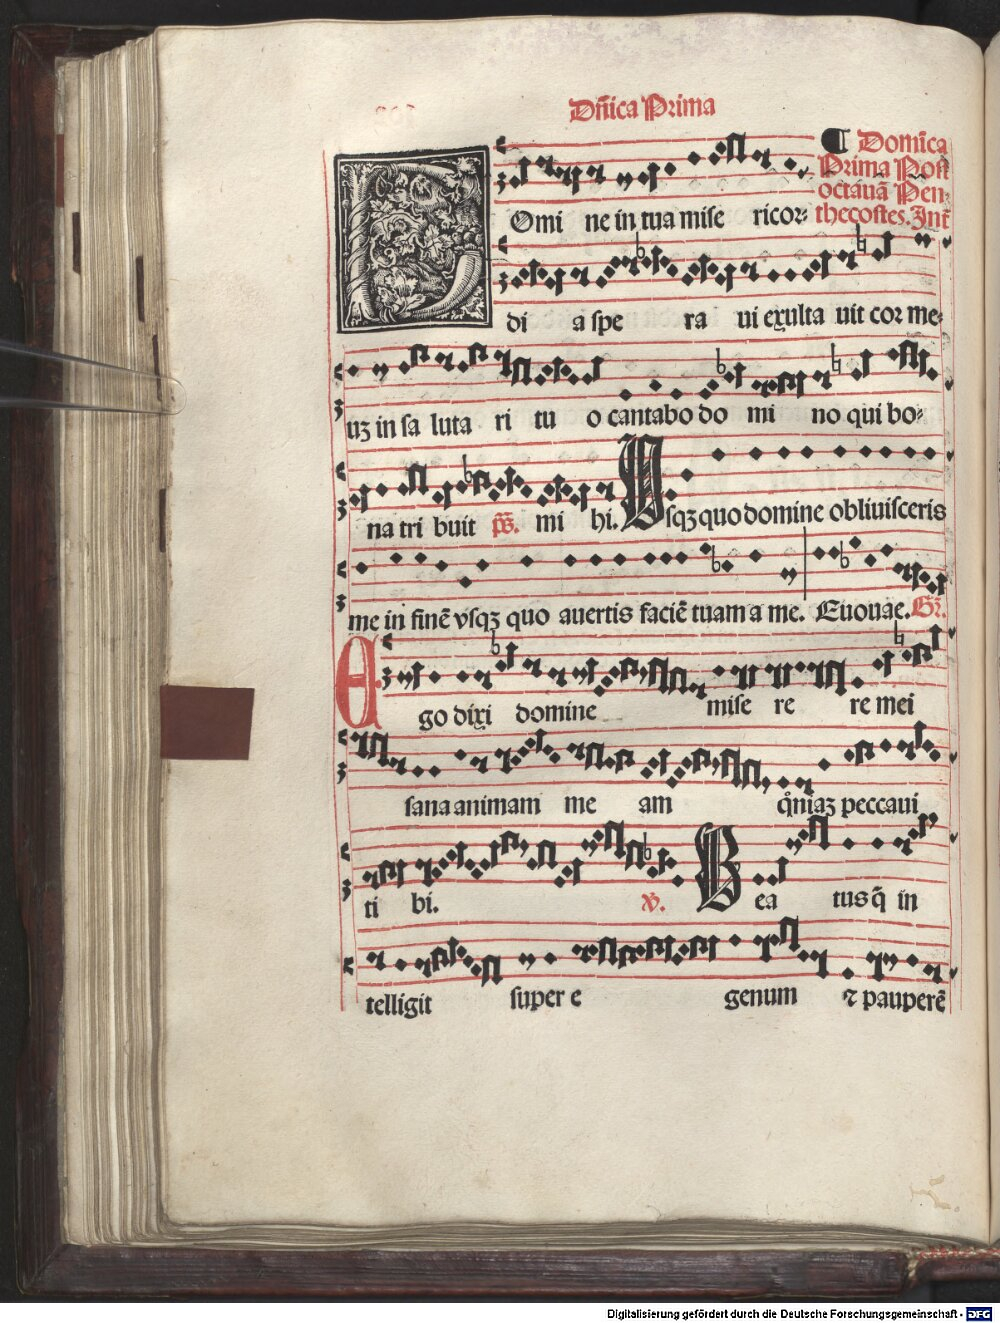 Dn̄ica Prima
¶ Domīca
Prima Post
octauā Pen-
thecostes. Int̄
DOmi ne in tua mise ricor-
di a spe ra ui exulta uit cor me-
uꝫ in sa luta ri tu o cantabo do mi no qui bo-
na tri buit p̄s. mi hi. Vsqꝫ quo domine obliuisceris
me in finē vsqꝫ quo auertis faciē tuam a me. Euouae. Gr̄.
Ego dixi domine mise re re mei
sana animam me am qm̄iaꝫ peccaui
ti bi. v. Bea tus q̄ in
telligit super e genum ⁊ pauperē
Digitalisierung gefördert durch die Deutsche Forschungsgemeinschaft - DFG